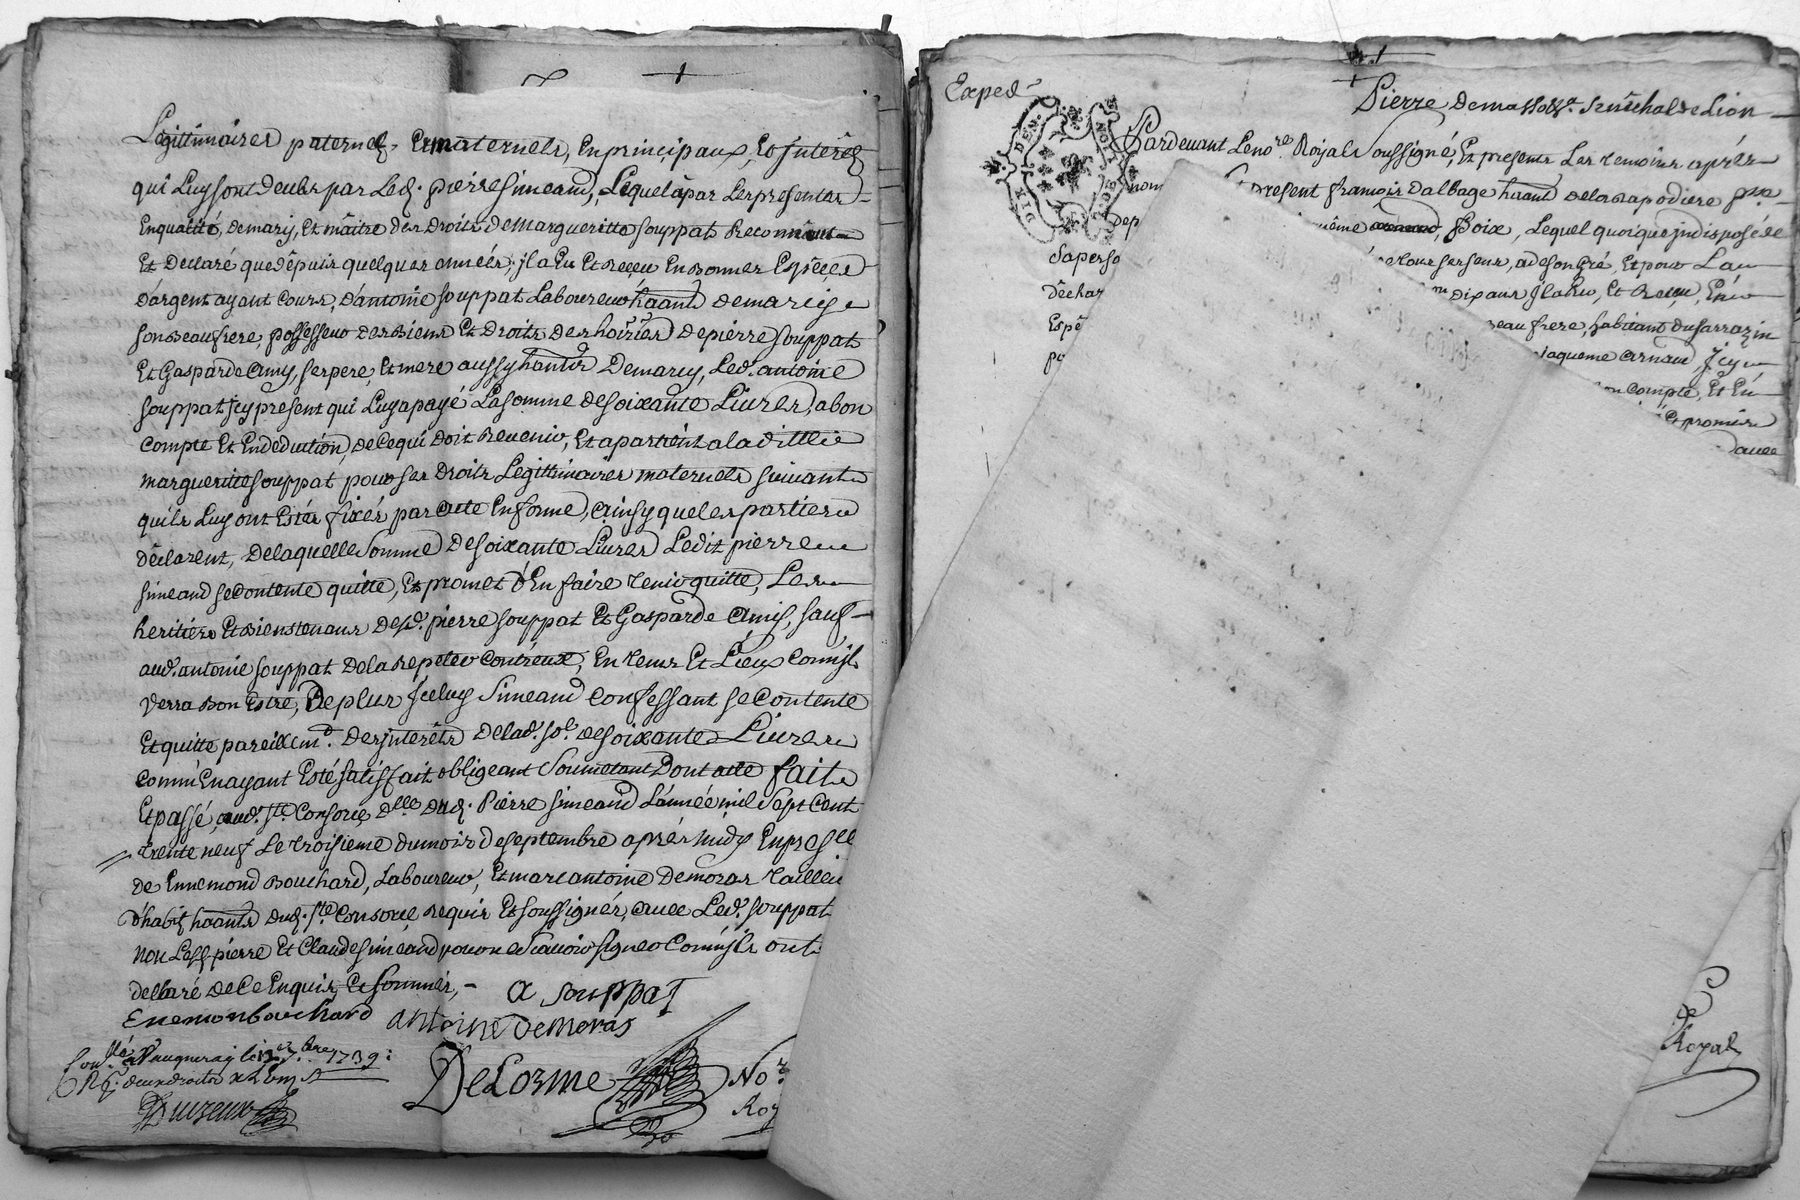 Legittimaires paternels Et maternels, En principaux, Et Interêts
qui Luy sont deubs par Led. pierre simeand, Lequel a par Les presentes
En qualité, de mary, Et maître des Droits de Margueritte souppat Reconnu
Et Declaré que dêpuis quelques années, jl a Eu Et Receu En Bonnes Espêces
d'argent ayant Cours, d'antoine souppat Laboureur haant de marcy
son Beaufrere, possesseur des Biens Et Droits des hoiries de pierre souppat
Et Gasparde Amy, ses pere, Et mere aussy hants De marcy, Led. antoine
souppat jcy present qui Luy a payé La somme de soixante Livres, a bon
compte Et En deduction, de Ce qui doit Revenir, Et apartient a la ditte
margueritte souppat pour ses Droits Legittimaires maternels suivant
qu'ils Luy ont Estés fixés par acte En forme, ainsy que les parties
dêclarent, De laquelle Somme De soixante Livres Ledit pierre
simeand se Contente quitte, Et promet d'En faire tenir quitte, Les
heritiers Et Bienstenans Desd. pierre souppat Et Gasparde Amy, sauf
aud. antoine souppat De la Repeter Contr'eux, En tems Et Lieux Comm'jl
verra Bon Estre, De plus jceluy Simeand Confessant se Contente
Et quitte pareillemt. Des jnterêts De lad. so. de soixante Livres
Comm'En ayant Esté satisfait obligeant Soumetant Dont acte fait
Et passé, aud. ste. Consorce, Dlle. Dud. Pierre simeand L'année mil Sept Cent
trente neuf Le troisieme du mois De septembre aprés midy En presce
de Ennemond Bouchard, Laboureur, Et marc antoine Demoras taillieu
d'habit haants dud. ste. Consorce, Requis Et soussignés, avec Led. souppat
non Lesd. pierre Et Claude simeand pour ne Sçavoir signer Comm'jls ont
declaré de Ce Enquis, Et sommés,
a souppat
Enemonbouchard antoine Demoras
Conllé. a Vaugneray le 13 7bre 1739
DeLorme No.re
Roy
Exped.
Pierre Demasso Sr. Senêchal de Lion
DE LION
Pardevant Le nore. Royal Soussigné, Et presents Les temoins aprés
nom present françois Dalbage haant de la Rapodiere
Dep Boix, Lequel quoique jndisposé de
sa perso tous ses sens, a de son Gré, Et pour L'au
dêchar dix ans jl a Eu, Et Receu, En
Espê eau frere, habitant du sarrazin
po jaqueme arnaud, jcy
on compte, Et En
Et promis
avec
Royal